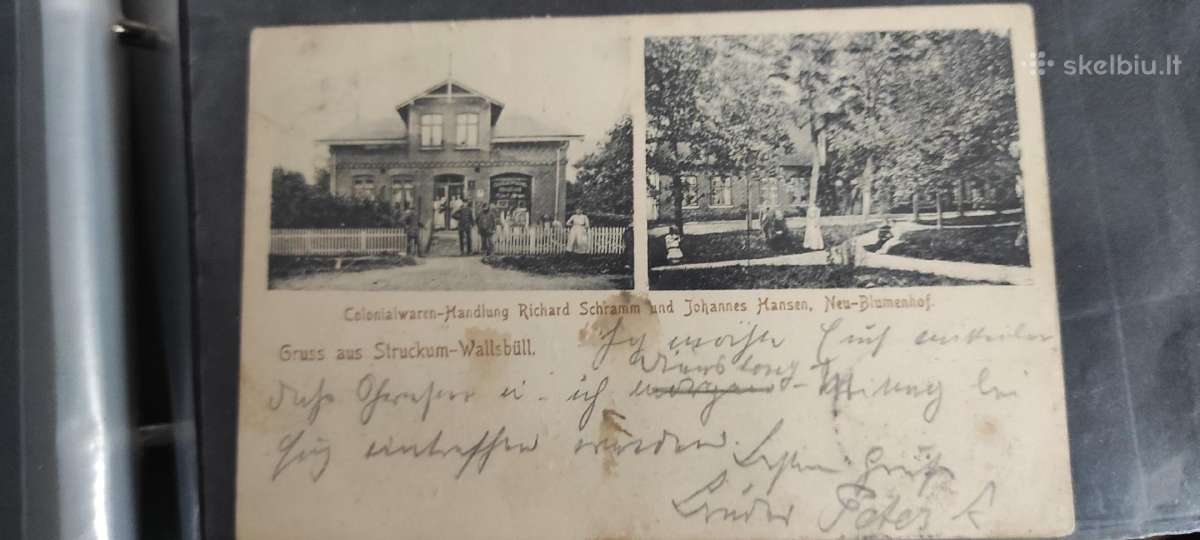 skelbiu.lt
Colonialwaren-Handlung Richard Schramm und Johannes Hansen, Neu-Blumenhof.
Gruss aus Struckum-Wallsbüll.
Ich möchte Euch mitteilen
Dienstag
daß u. ich morgen Mittag bei
Euch eintreffen würden.
Besten Gruß
Bruder Peter